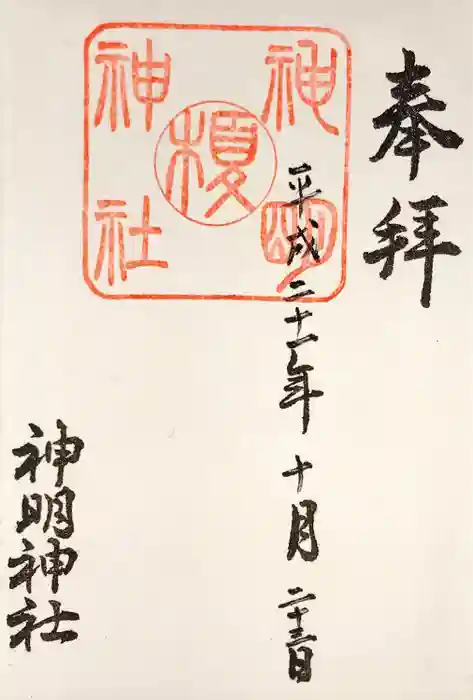 奉拝
平成二十一年十月二十三日
神明
榎
神社
神明神社